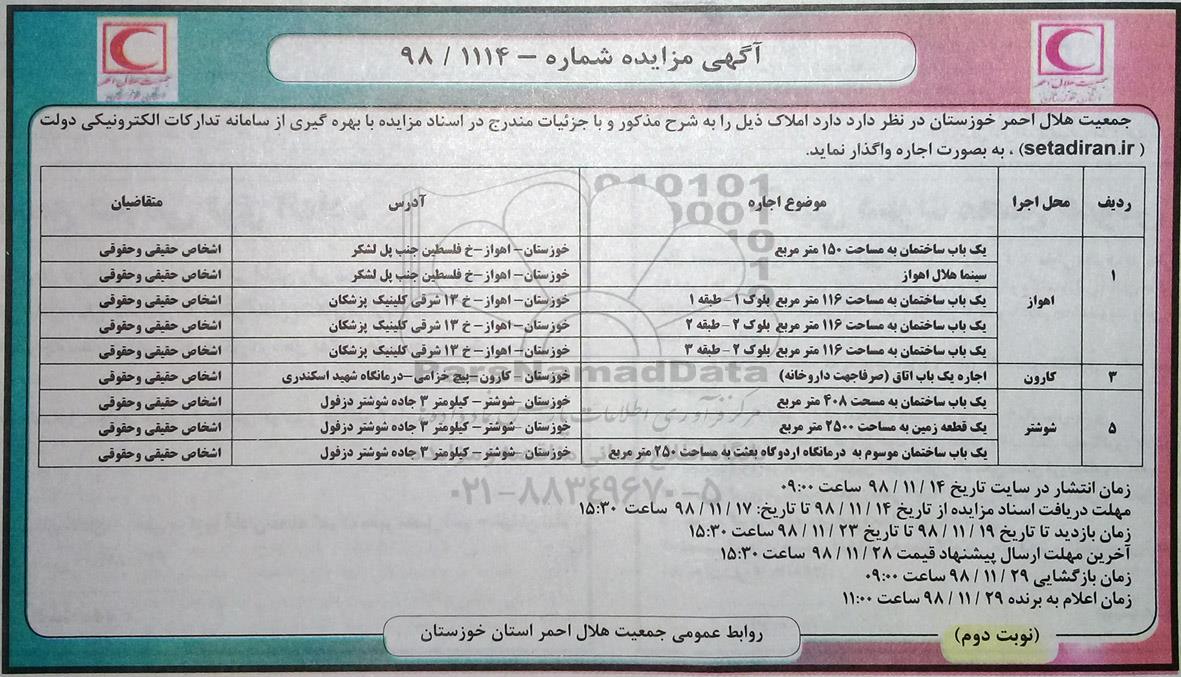 آگهی مزایده شماره – ۱۱۱۴ / ۹۸
جمعیت هلال احمر
جمعیت هلال احمر
جمعیت هلال احمر خوزستان در نظر دارد دارد املاک ذیل را به شرح مذکور و با جزئیات مندرج در اسناد مزایده با بهره گیری از سامانه تدارکات الکترونیکی دولت
( setadiran.ir) ، به بصورت اجاره واگذار نماید.
ردیف محل اجرا موضوع اجاره آدرس متقاضیان
یک باب ساختمان به مساحت ۱۵۰ متر مربع خوزستان- اهواز-خ فلسطین جنب پل لشگر اشخاص حقیقی وحقوقی
سینما هلال اهواز خوزستان- اهواز-خ فلسطین جنب پل لشگر اشخاص حقیقی وحقوقی
۱ اهواز یک باب ساختمان به مساحت ۱۱۶ متر مربع بلوک ۱- طبقه ۱ خوزستان- اهواز- خ ۱۳ شرقی کلینیک پزشکان اشخاص حقیقی وحقوقی
یک باب ساختمان به مساحت ۱۱۶ متر مربع بلوک ۲- طبقه ۲ خوزستان- اهواز- خ ۱۳ شرقی کلینیک پزشکان اشخاص حقیقی وحقوقی
یک باب ساختمان به مساحت ۱۱۶ متر مربع بلوک ۲- طبقه ۳ خوزستان- اهواز- خ ۱۳ شرقی کلینیک پزشکان اشخاص حقیقی وحقوقی
۳ کارون اجاره یک باب اتاق (صرفاجهت داروخانه) خوزستان- کارون-پیچ خزامی-درمانگاه شهید اسکندری اشخاص حقیقی وحقوقی
یک باب ساختمان به مسحت ۴۰۸ متر مربع خوزستان-شوشتر- کیلومتر ۳ جاده شوشتر دزفول اشخاص حقیقی وحقوقی
۵ شوشتر یک قطعه زمین به مساحت ۲۵۰۰ متر مربع خوزستان-شوشتر- کیلومتر ۳ جاده شوشتر دزفول اشخاص حقیقی وحقوقی
یک باب ساختمان موسوم به درمانگاه اردوگاه بعثت به مساحت ۲۵۰ متر مربع خوزستان-شوشتر- کیلومتر ۳ جاده شوشتر دزفول اشخاص حقیقی وحقوقی
ParsNamadData
۰۲۱-۸۸۳۴۹۶۷۰-۵
زمان انتشار در سایت تاریخ ۱۴ / ۱۱ / ۹۸ ساعت ۰۹:۰۰
مهلت دریافت اسناد مزایده از تاریخ ۱۴ / ۱۱ / ۹۸ تا تاریخ: ۱۷ / ۱۱ / ۹۸ ساعت ۱۵:۳۰
زمان بازدید تا تاریخ ۱۹ / ۱۱ / ۹۸ تا تاریخ ۲۳ / ۱۱ / ۹۸ ساعت ۱۵:۳۰
آخرین مهلت ارسال پیشنهاد قیمت ۲۸ / ۱۱ / ۹۸ ساعت ۱۵:۳۰
زمان بازگشایی ۲۹ / ۱۱ / ۹۸ ساعت ۰۹:۰۰
زمان اعلام به برنده ۲۹ / ۱۱ / ۹۸ ساعت ۱۱:۰۰
(نوبت دوم)
روابط عمومی جمعیت هلال احمر استان خوزستان